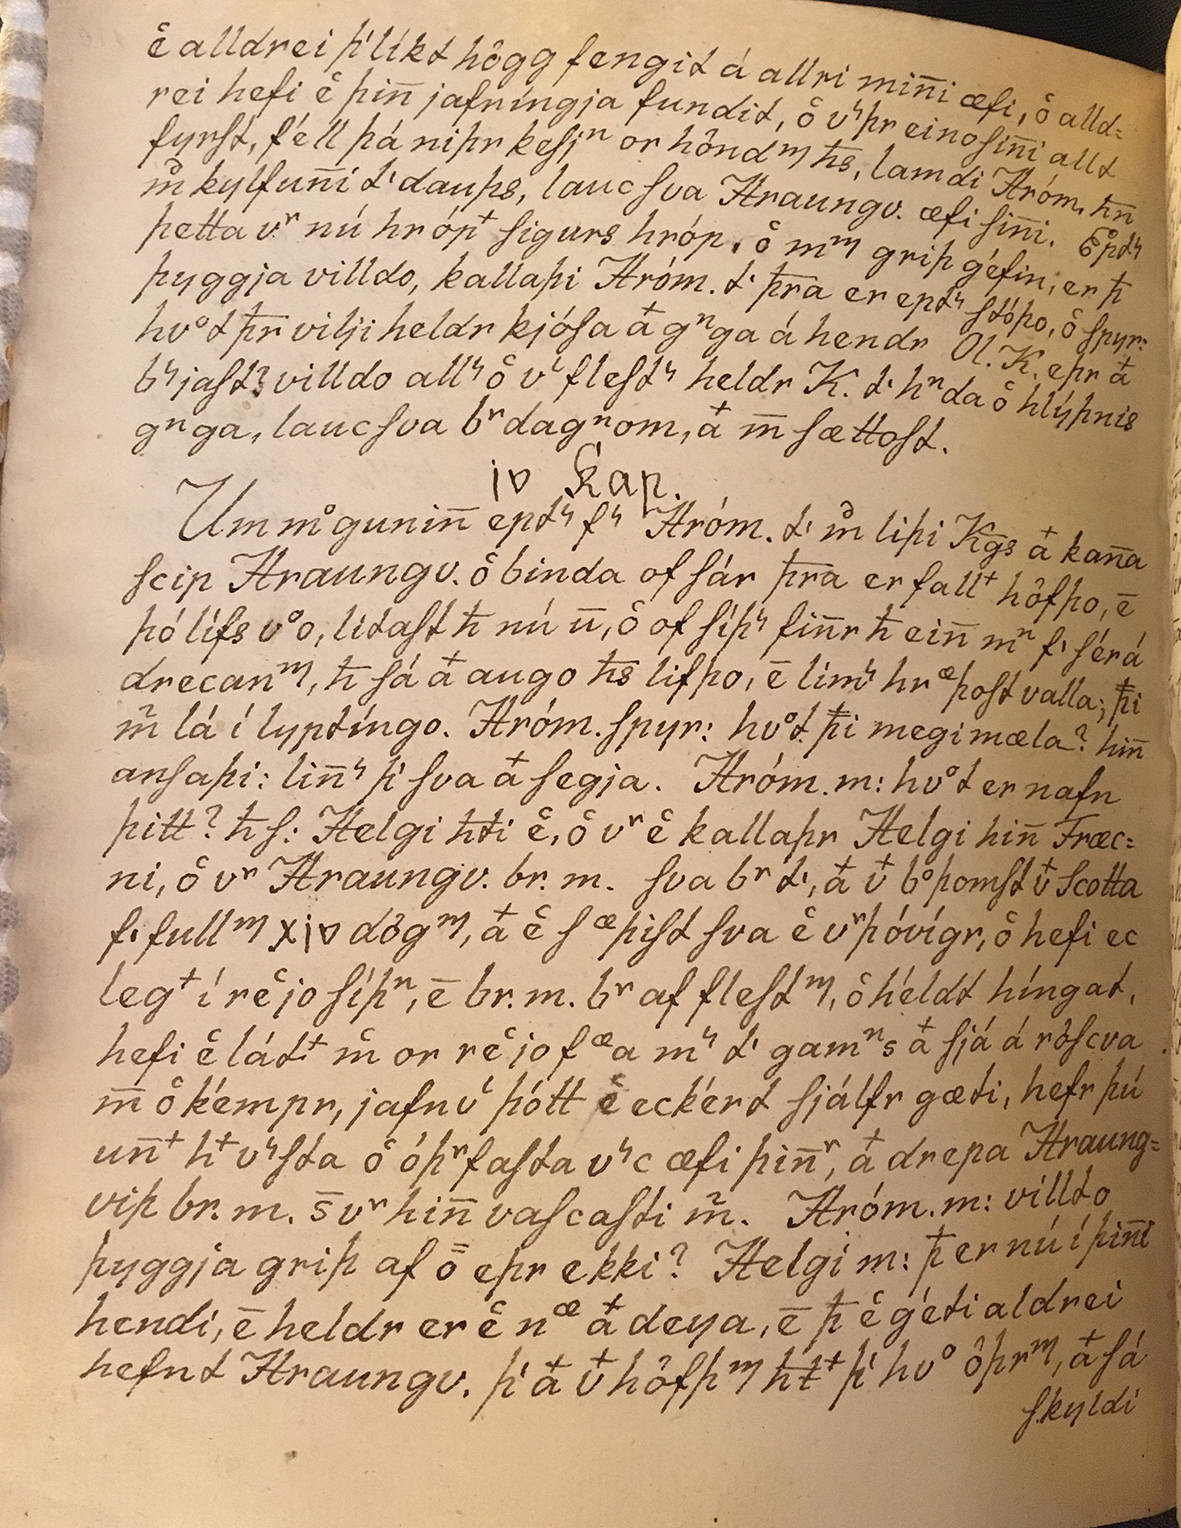 ec̆ alldrei þ'líkt högg fengit á allri miñi æfi, ŏ alld=
rei hefi ĕ þiñ jafníngja fundit, ŏ vʳþr eino siñi allt
fyrst, féll þá niþr kesjⁿ or höndᵐ h̄s, lamdi Hróm. h̄n
m̊ kylfuñi t' dauþs, lauc sva Hraungv. æfi siñi. Eptʳ
þetta vʳ nú hrópᵗ sigurs hróp, ŏ mᵐ griþ géfin, er þ̄
þyggja villdo, kallaþi Hróm. t' þ̄ra er eptʳ stóþo, ŏ spyr:
hvᵒt þ̄r vilji heldr kjósa aᵗ gⁿga á hendr Ol. K. eþr aᵗ
bʳjast; villdo allʳ ŏ vͥ flestʳ heldr K. t' hⁿda ŏ hlýþnis
gⁿga, lauc sva bʳdagⁿom, aᵗ m̄ sættost.
iv Kap.
Um mᵒguniñ eptʳ fʳ Hróm. t' m̊ liþi K̄gs aᵗ kañа
scip Hraungv. ŏ binda of sár þ̄ra er fallᵗ höfþo, ē
þó lífs vᵒo, litast h̄ nú ū, ŏ of síþʳ fiñr h̄ eiñ mⁿ f' sér á
drecanᵐ, h̄ sá aᵗ augo h̄s lifþo, ē limʳ hrᵆþost valla; þ̄i
m̃ lá í lyptíngo. Hróm. spyr: hvᵒt þ̄i megi mæla? hiñ
ansaþi: liñʳ þ' sva aᵗ segja. Hróm. m: hvᵒt er nafn
þitt? h̄ s: Helgi h̄ti ĕ, ŏ vʳ ĕ kallaþr Helgi hiñ Fræc=
ni, ŏ vʳ Hraungv. br. m. sva bʳ t', aᵗ vᵗ bᵒþomst vᵗ Scotta
f' fullᵐ xiv dögᵐ, aᵗ ĕ sᵆþist sva ĕ vʳþ óvígr, ŏ hefi ec
legᵗ í rĕjo síþⁿ, ē br. m. bʳ af flestᵐ, ŏ héldt híngat,
hefi ĕ látᵗ m̊ or rĕjo fᵆa mʳ t' gamⁿs aᵗ sjá á röscva
m̄ ŏ kémpr, jafnvͥ þótt ĕ eckért sjálfr gæti, hefr þú
uñᵗ hᵗ vʳsta ŏ óþʳfasta vʳc æfi þiñʳ, aᵗ drepa Hraung=
viþ br. m. s̄ vʳ hiñ vascasti m̃. Hróm. m: villdo
þyggja griþ af ō eþr ekki? Helgi m: þ̄ er nú í þiñi
hendi, ē heldr er ĕ nᵆ aᵗ deya, ē þ̄ ĕ géti aldrei
hefnt Hraungv. þ' aᵗ vᵗ höfþᵐ h̄tᵗ þ' hvᵒ öþrᵐ, aᵗ sá
skyldi